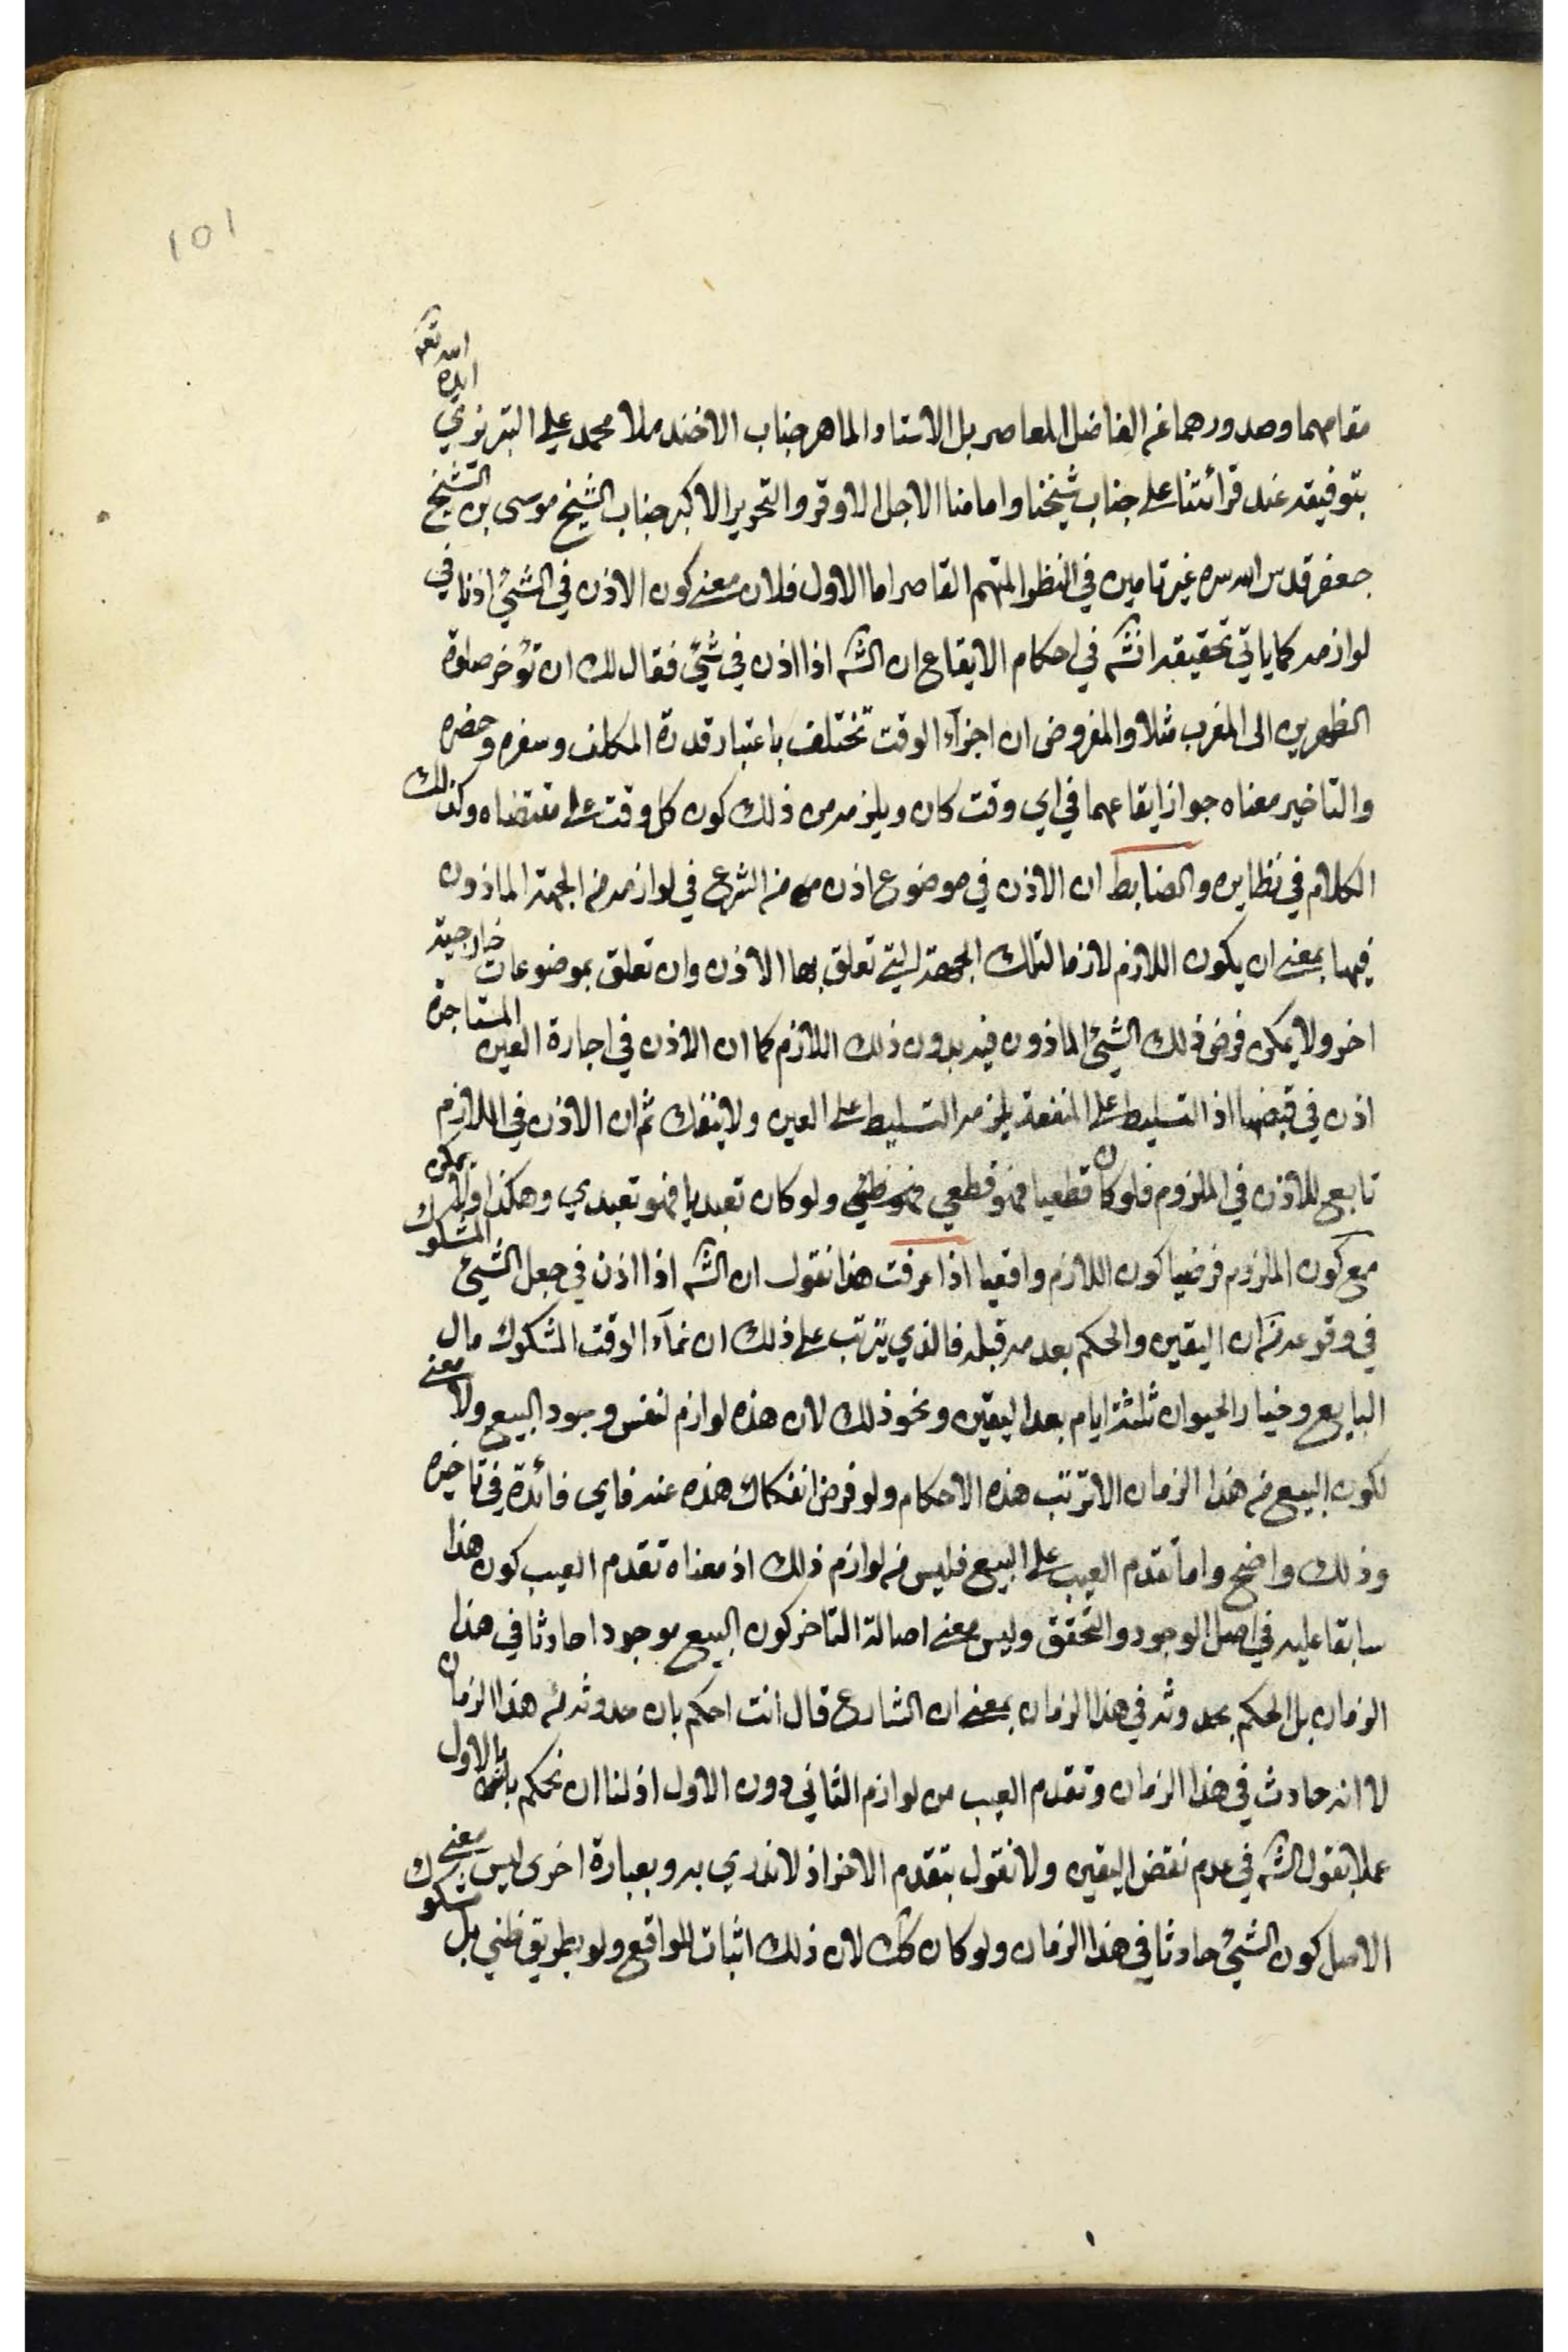 101
مقامهما وصدورهما عن الفاضل المعاصر بل الاستاد الماهر جناب الاخند ملا محمد علي التبريزي ايده الله تعم
بتوفيقه عند قرائتنا على جناب شيخنا وامامنا الاجل الاوقر والتحرير الاكبر جناب الشيخ موسى بن الشيخ
جعفر قدس الله سره غير تامين في النظر المتهم القاصر اما الاول فلان معنى كون الاذن في الشيئ اذنا في
لوازمه كما ياتي تحقيقه انشه في احكام الايقاع ان الشه اذا اذن في شيئ فقال لك ان تؤخر صلوة
الظهرين الى المغرب مثلا والمفروض ان اجزآء الوقت تختلف باعتبار قدرة المكلف وسفره وحضره
والتاخير معناه جواز ايقاعهما في اي وقت كان ويلزمه من ذلك كون كل وقت على مقتضاه وكذلك
الكلام في نظايره والضابط ان الاذن في موضوع اذن من الشرع في لوازمه من الجهة الماذون
فيها بمعنى ان يكون اللازم لازما لتلك الجهة التي تعلق بها الاذن وان تعلق بموضوعات خارجية
اخر ولا يمكن فرض ذلك الشيئ الماذون فيه بدون ذلك اللازم كما ان الاذن في اجارة العين المستاجرة
اذن في قبضها اذ التسليط على المنفعة يلزمه التسليط على العين ولا ينفك ثم ان الاذن في اللازم
تابع للاذن في الملزوم فلو كان قطعيا فهو قطعي فهو ظني ولو كان تعبديا فهو تعبدي وهكذا ولا يمكن
مع كون الملزوم فرضيا كون اللازم واقعيا اذا عرفت هذا نقول ان الشه اذا اذن في جعل الشيئ المشكوك
في وقوعه زمان اليقين والحكم بعدمه قبله فالذي يترتب على ذلك ان نمآء الوقت المشكوك مال
البايع وخيار الحيوان ثلثة ايام بعد اليقين ونحو ذلك لان هذه لوازم لنفس وجود البيع ولا معنى
لكون البيع في هذا الزمان الا ترتب هذه الاحكام ولو فرض انفكاك هذه عنه فاي فائدة في تاخيره
وذلك واضح واما تقدم العيب على البيع فليس من لوازم ذلك اذ معناه تقدم العيب كون هذا
سابقا عليه في اصل الوجود والتحقق وليس معنى اصالة التاخر كون البيع موجودا حادثا في هذا
الزمان بل الحكم بحدوثه في هذا الزمان بمعنى ان الشارع قال انت احكم بان حدوثه في هذا الزمان
لا انه حادث في هذا الزمان وتقدم العيب من لوازم الثاني دون الاول اذ لنا ان نحكم بالاول
عملا بقول الشه في عدم نقض اليقين ولا نقول بتقدم الاخر اذ لا ندري به وبعبارة اخرى ليس معنى
الاصل كون الشيئ حادثا في هذا الزمان ولو كان كك لان ذلك اثبات للواقع ولو بطريق ظني بل